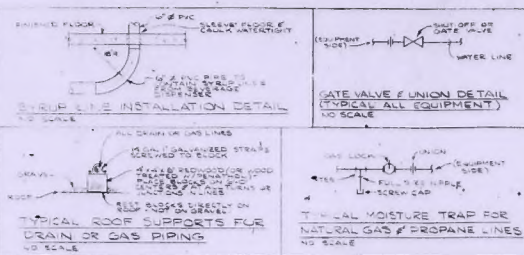 6" Ø PVC
FINISHED FLOOR
SLEEVE FLOOR &
CAULK WATERTIGHT
6" Ø PVC PIPE TO
CONTAIN SYRUP LINES
FROM BEVERAGE
DISPENSER
SYRUP LINE INSTALLATION DETAIL
NO SCALE
SHUT OFF OR
GATE VALVE
(EQUIPMENT
SIDE)
WATER LINE
GATE VALVE & UNION DETAIL
(TYPICAL ALL EQUIPMENT)
NO SCALE
ALL DRAIN OR GAS LINES
GALVANIZED STRAPS
SCREWED TO BLOCK
REDWOOD (OR WOOD
TREATED
BLOCKS ON
CENTERS & AT ALL TURNS OR
IN LINES
GRAVEL
ROOF
REST BLOCKS DIRECTLY ON
ROOF (NOT ON GRAVEL)
TYPICAL ROOF SUPPORTS FOR
DRAIN OR GAS PIPING
NO SCALE
GAS COCK
UNION
(EQUIPMENT
SIDE)
TEE
FULL SIZE NIPPLE
SCREW CAP
TYPICAL MOISTURE TRAP FOR
NATURAL GAS & PROPANE LINES
NO SCALE